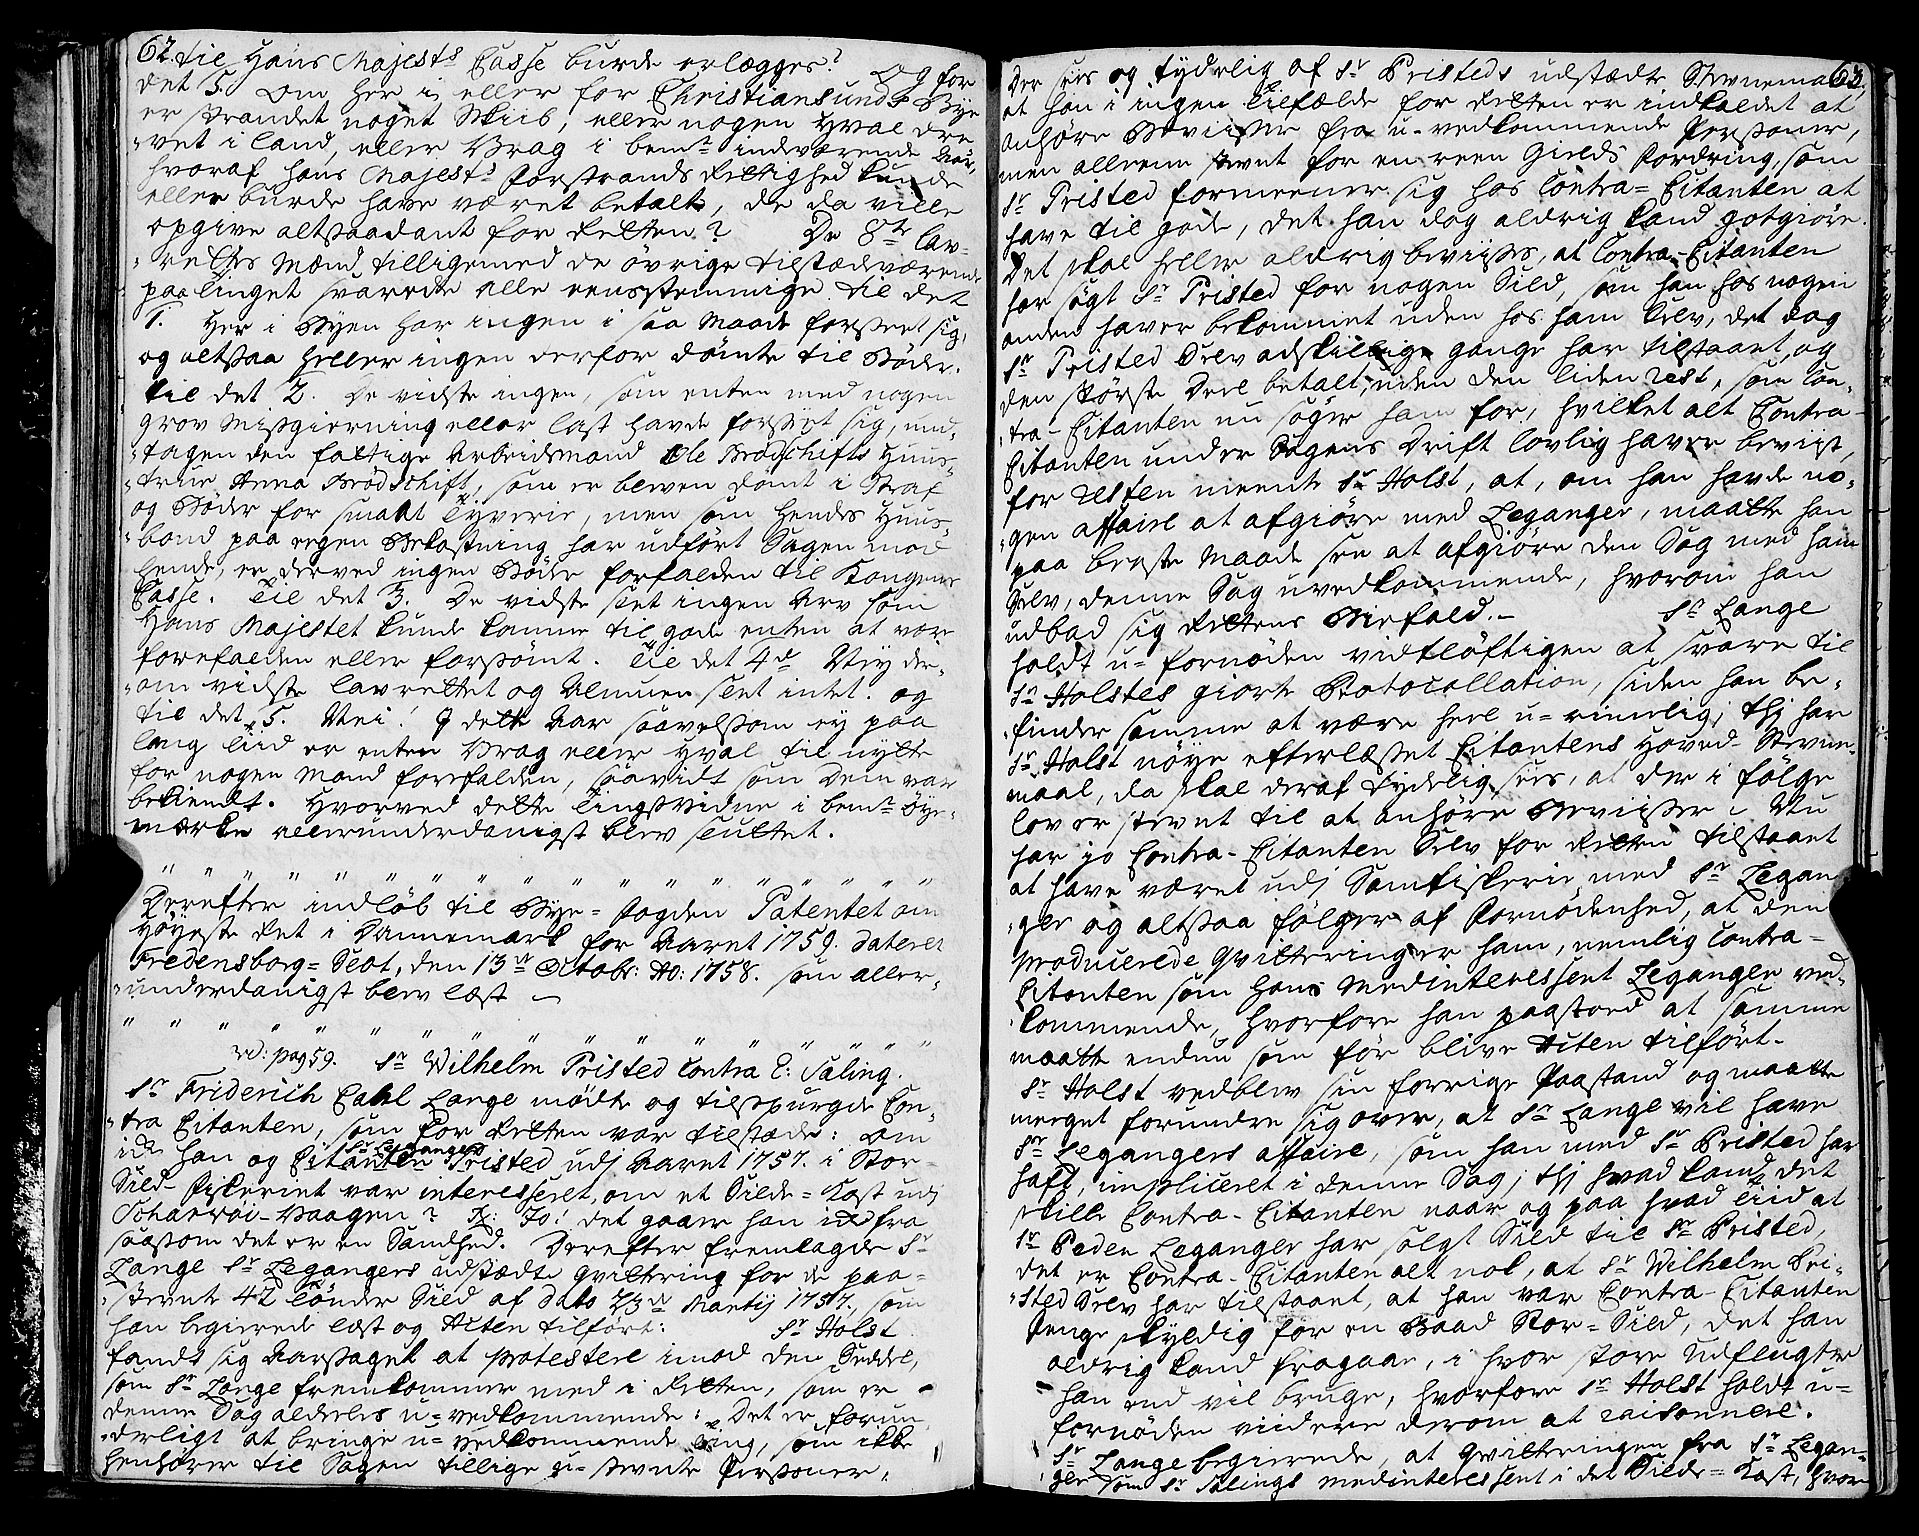 62. til Hans Majests Casse burde erlægges? Og for
det 5. Om her i eller for Christiansunds Bye
er strandet noget Skiib, eller nogen Hval dre-
vet i land, eller Vrag i bemte indværende Aar,
hvoraf hans Majests Forstrands Rettighed kunde
eller burde have været betalt, de da ville
opgive altsaadant for Retten? De 8te lav-
retts Mænd tilligemed de øvrige tilstædeværende
paa Tinget svarede alle eensstemmige til det
1. Her i Byen har ingen i saa Maade forseet sig,
og altsaa heller ingen derfor dömte til Böder.
til det 2. De vidste ingen, som enten med nogen
grov Misgierning eller last havde forseet sig, und-
tagen den fattige Arbeidsmand Ole Brødschifts Huus-
true Anna Brødschift, som er bleven dömt i Straf
og Böder for smaat Tyverie, men som hendes Huus-
bond paa egen Bekostning har udført Sagen mod
hende, er derved ingen Böder forfalden til Kongens
Casse. Til det 3. De vidste slet ingen Arv som
Hans Majestet kunde komme til gode enten at være
forefalden eller forssömt. Til det 4de Viy der-
om vidste lavrettet og Almuen slet intet. og
til det 5. Nei! I dette Aar saavelssom ey paa
lang Tiid er enten Vrag eller Hval til nytte
for nogen Mand forefalden, saavidt som Dem var
bekiendt. Hvorved dette Tingsvidne i bemte Øye-
mærke allerunderdanigst blev sluttet.
" " " " " " " " " " " " " " " " "
Derefter indløb til Bye-Fogden Patentet om
Höyeste Ret i Dannemark for Aaret 1759. dateret
Fredensborg-Slot, den 13de Octobr: Ao: 1758. som aller-
underdanigst blev læst
" " " " " " " " " " " " " " " "
vid: pag 59. Sr Wilhelm Pristed Contra E: Saling.
Sr Friderich Carl Lange mødte og tilspurgde Con-
tra Citanten, som for Retten var tilstæde: om
Sr Leganger
ick han og Citanten Pristed udj Aaret 1757. i Stor-
Sild Fiskeriet var interesseret, om et Silde-Kast udj
-Vaagen? R: Jo! det gaaer han ick fra
saassom det er en Sandhed. Derefter fremlagde Sr
Lange Sr Legangers udstædte qvittering for de paa-
stevnte 42 Tönder Sild af dato 23de Martij 1757., som
han begierede læst og Acten tilført: Sr Holst
fandt sig Aarsaget at protestere imod den Seddel,
som Sr Lange fremkommer med i Retten, som er
denne Sag aldeeles u-vedkommende: Det er forun-
derligt at bringe u-vedkommende ting, som ikke
henhører til Sagen tillige u-stevnte Personer.
Der sees og tydelig af Sr Pristeds udstædte Stevnemaal 63.
at han i ingen Tilfælde for Retten er indkaldet at
anhøre Beviisser fra u-vedkommende Personer,
men alleene stevnt for en reen Gields Fordring, som
Sr Pristed formeener sig hos Contra-Citanten at
have til gode, det han dog aldrig kand gotgiøre.
Det skal heller aldrig beviisses, at Contra-Citanten
har søgt Sr Pristed for nogen Sild, som han hos nogen
anden haver bekommet uden hos ham Selv, det dog
Sr Pristed Selv adskillige gange har tilstaaet, og
den störste Deel betalt, uden den liden rest, som Con-
tra-Citanten nu søger ham for, hvilket alt Contra-
Citanten under Sagens Drift lovlig haver beviist,
for resten meente Sr Holst, at, om han havde no-
gen affaire at afgiøre med Leganger, maatte han
paa beqste Maade see at afgiøre den Sag med ham
Selv, denne Sag uvedkommende, hvorom han
udbad sig Rettens Biefald. Sr Lange
holdt u-fornøden vidtløftigen at svare til
Sr Holstes giorte Protocollation, siden han be-
finder samme at være heel u-rimelig; thj har
Sr Holst nöye efterlæsset Citantens Hoved-Stevne-
maal, da skal deraf tydelig sees, at der i følge
lov er stevnt til at anhøre Beviisser i. Nu
har jo Contra-Citanten Selv for Retten tilstaaet
at have været udj Samfiskerie med Sr Legan-
ger og altsaa følger af Fornødenhed, at den
producerede Qvittering er ham, nemlig Contra-
Citanten som hans Medinteressent Leganger ved-
kommende, hvorfore han paastoed at samme
maatte endnu som før blive Acten tilført.
Sr Holst vedblev sin forrige Paastand og maatte
meeget forundre sig over, at Sr Lange vil have
Sr Legangers affaire, som han med Sr Pristed har
haft, impliceret i denne Sag; thj hvad kand det
skille Contra-Citanten naar og paa hvad Tiid at
Sr Peder Leganger har solgt Sild til Sr Pristed,
det er Contra-Citanten alt nok, at Sr Wilhelm Pri-
sted Selv har tilstaaet, at han var Contra-Citanten
penge skyldig for en Baad Stor-Sild, det han
aldrig kand fragaae, i hvor store Udflugter
han end vil bruge, hvorfore Sr Holst holdt u-
fornøden viidere derom at raisonnere.
Sr Lange begierede, at Qvitteringen fra Sr Legan-
ger som Sr Salings medinteressent i det Silde-Kast, hvor